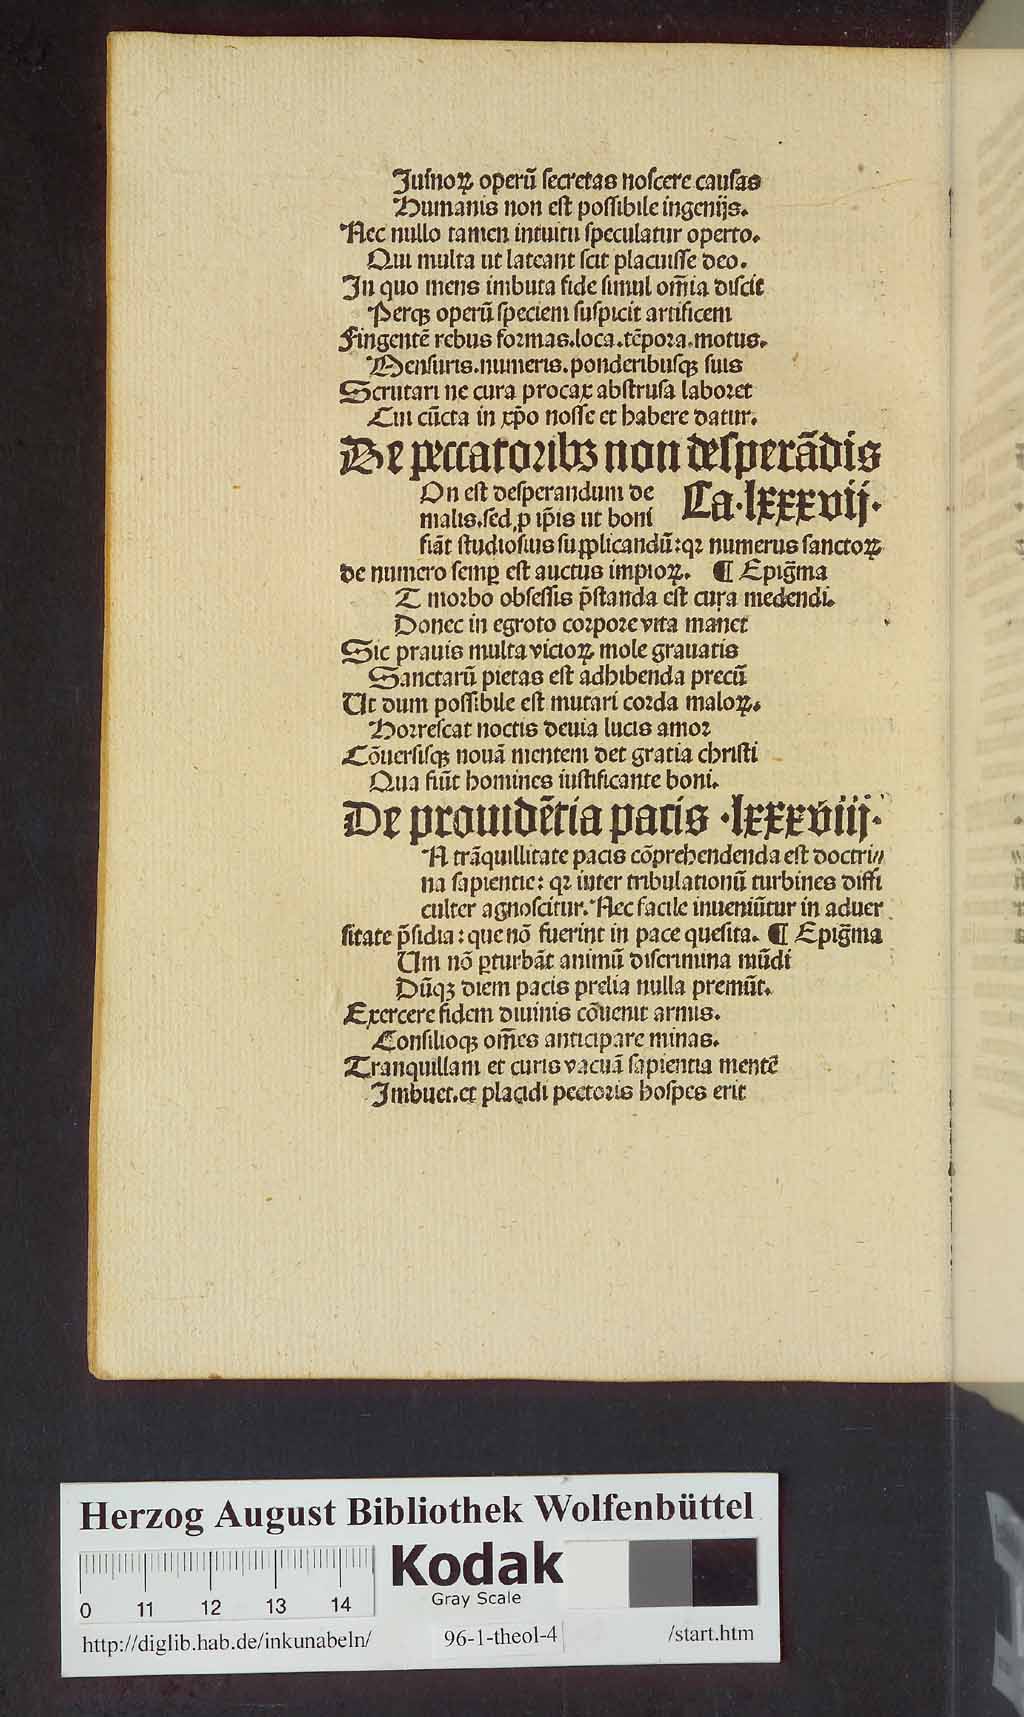 Iuſnoꝝ operū ſecretas noſcere cauſas
Humanis non eſt poſſibile ingenijs.
Nec nullo tamen intuitu ſpeculatur operto.
Qui multa ut lateant ſcit placuiſſe deo.
In quo mens imbuta fide ſimul om̄ia diſcit
Perqꝫ operū ſpeciem ſuſpicit artificem
Fingentē rebus formas.loca.tēpora.motus.
Menſuris.numeris.ponderibuſqꝫ ſuis
Scrutari ne cura procax abſtruſa laboret
Cui cūcta in xp̄o noſſe et habere datur.
De peccatoribꝫ non deſperādis
On eſt deſperandum de Ca.lxxxvij.
malis.ſed ꝓ ip̄is ut boni
fiāt ſtudioſius ſupplicandū:qꝛ numerus ſanctoꝝ
de numero ſemꝑ eſt auctus impioꝝ. ¶ Epig̃ma
T morbo obſeſſis p̄ſtanda eſt cura medendi.
Donec in egroto corpore vita manet
Sic prauis multa vicioꝝ mole grauatis
Sanctarū pietas eſt adhibenda precū
Ut dum poſſibile eſt mutari corda maloꝝ.
Horreſcat noctis deuia lucis amor
Cōuerſiſqꝫ nouā mentem det gratia chriſti
Qua fiūt homines iuſtificante boni.
De prouidētia pacis .lxxxviij.
N trāquillitate pacis cōprehendenda eſt doctri//
na ſapientie: qꝛ inter tribulationū turbines diffi
culter agnoſcitur. Nec facile inueniūtur in aduer
ſitate p̄ſidia: que nō fuerint in pace queſita. ¶ Epig̃ma
Um nō ꝑturbāt animū diſcrimina mūdi
Dūqꝫ diem pacis prelia nulla premūt.
Exercere fidem diuinis cōuenit armis.
Conſilioqꝫ om̄es anticipare minas.
Tranquillam et curis vacuā ſapientia mentē
Imbuet.et placidi pectoris hoſpes erit
Herzog August Bibliothek Wolfenbüttel
Kodak
Gray Scale
0 11 12 13 14
http://diglib.hab.de/inkunabeln/ 96-1-theol-4 /start.htm